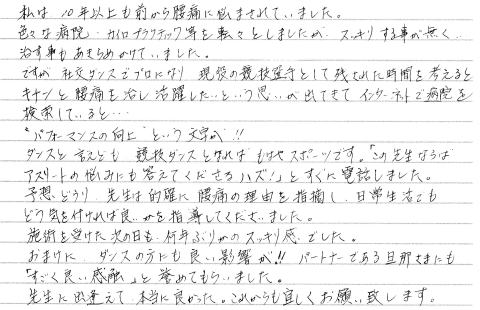 私は 10年以上も前から腰痛に悩まされていました。
色々な病院、カイロプラクティック等を転々としましたが、スッキリする事が無く、
治す事もあきらめかけていました。
ですが、社交ダンスでプロになり、現役の競技選手として残された時間を考えると
キチンと腰痛を治し活躍したいという思いが出てきて、インターネットで病院を
検索していると…
"パフォーマンスの向上"という文字が!!
ダンスと言えども、競技ダンスとなればもはやスポーツです。「この先生ならば
アスリートの悩みにも答えてくださるハズ!」とすぐに電話しました。
予想どうり、先生は的確に腰痛の理由を指摘し、日常生活でも
どう気を付ければ良いかを指導してくださいました。
施術を受けた次の日も、何年ぶりかのスッキリ感でした。
おまけに、ダンスの方にも良い影響が!! パートナーである旦那さまにも
「すごく良い感触」と誉めてもらいました。
先生に出逢えて、本当に良かった。これからも宜しくお願い致します。